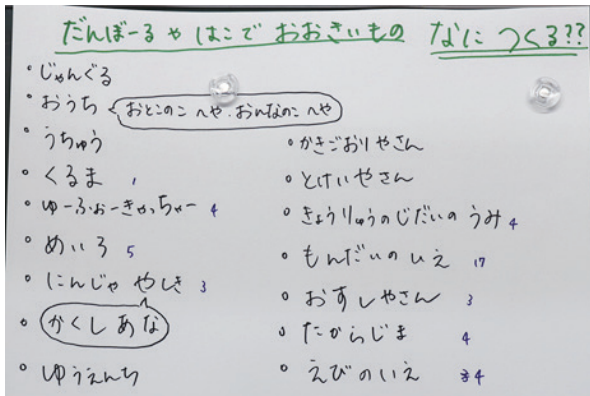 だんぼーるや はこで おおきいもの なに つくる??
・じゃんぐる
・おうち おとこのこ へや．おんなのこ へや
・うちゅう
・くるま 1
・ゆーふぉーきゃっちゃー 4
・めいろ 5
・にんじゃ やしき 3
・かくし あな
・ゆうえんち
・かきごおりやさん
・とけいやさん
・きょうりゅうのじだいの うみ 4
・もんだいの いえ 17
・おすしやさん 3
・たからじま 4
・えびのいえ 4